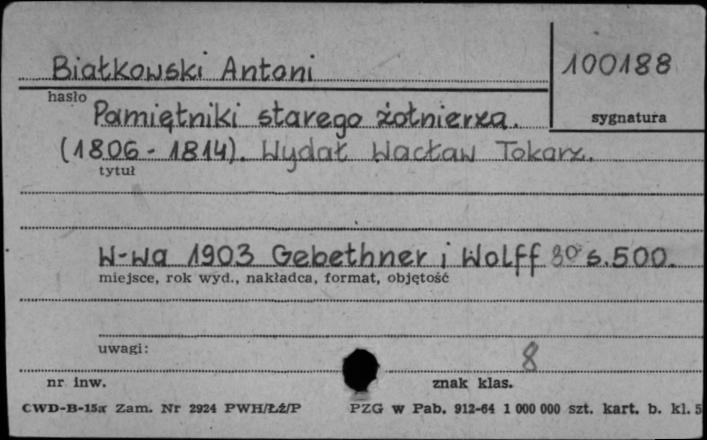 Białkowski Antoni
100188
hasło
Pamiętniki starego żołnierza.
sygnatura
(1806-1814). Wydał Wacław Tokarz.
tytuł
W-wa 1903 Gebethner i Wolff 80 s.500.
miejsce, rok wyd., nakładca, format, objętość
uwagi:
8
nr inw.
znak klas.
CWD-B-15a Zam. Nr 2924 PWH/Łź/P
PZG w Pab. 912-64 1 000 000 szt. kart. b. kl. 5